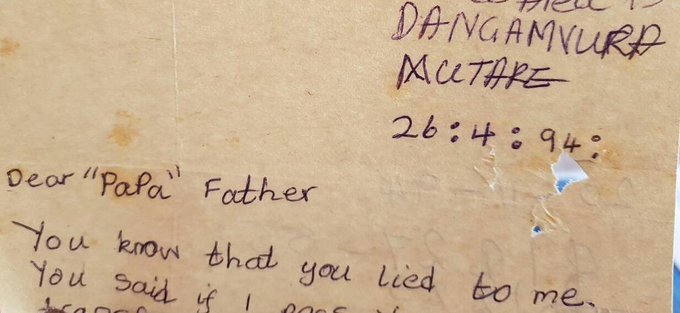 DANGAMVURA
MUTARE
26:4:94:
Dear "PaPa" Father
You know that you lied to me.
You said if I